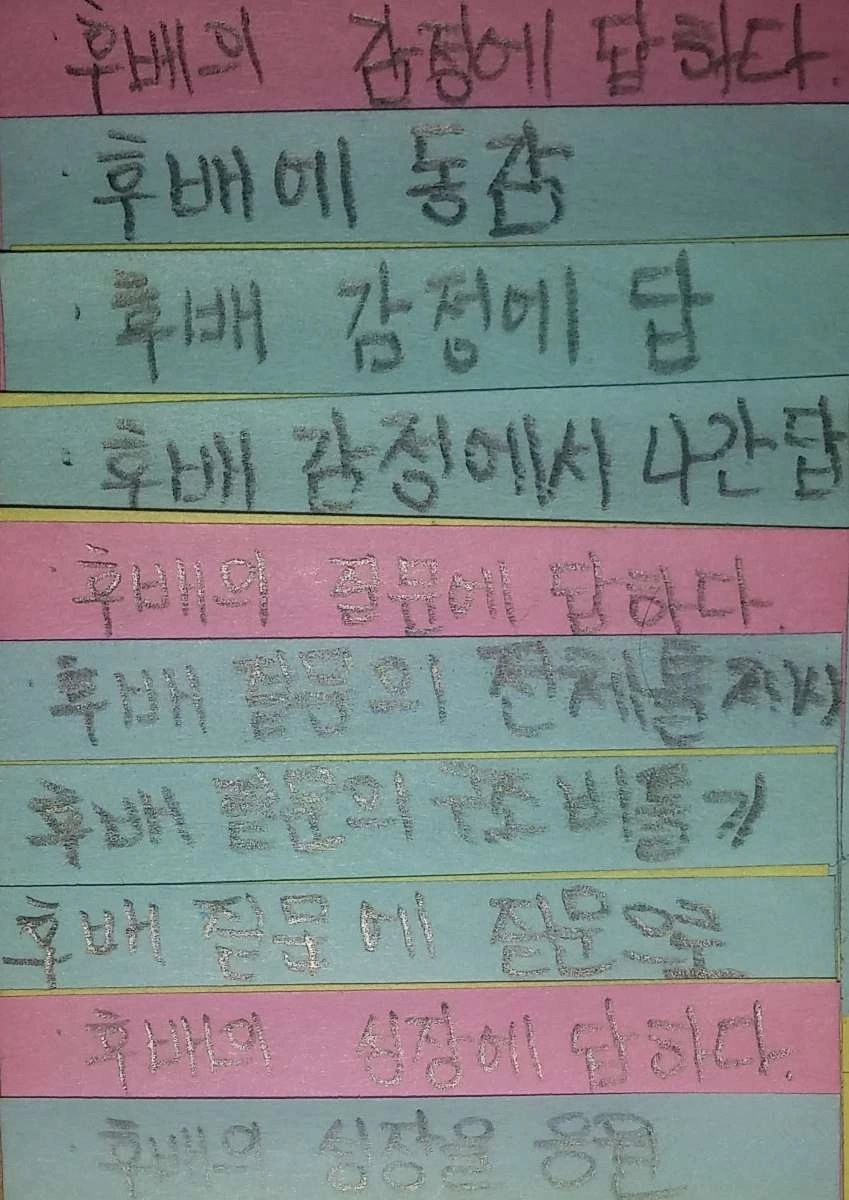 후배의 감정에 답하다.
후배에 동감
후배 감정에 답
후배 감정에서 나간답
후배의 질문에 답하다.
후배 질문의 전체를 제시
후배 질문의 구조 비틀기
후배 질문에 질문으로
후배의 성장에 답하다.
후배의 성장을 응원